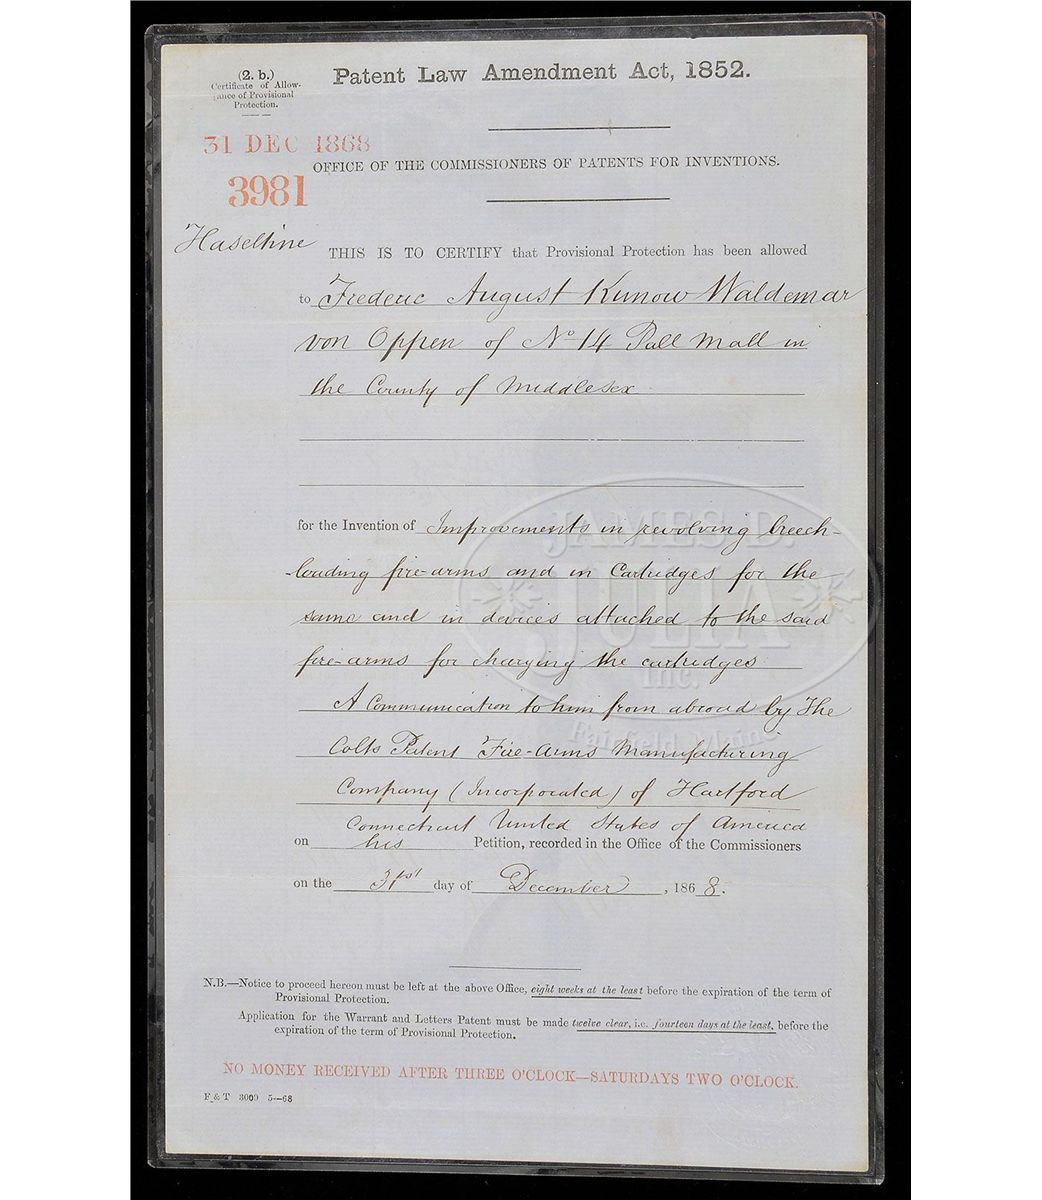 (2. b.)
Certificate of Allow-
ance of Provisional
Protection.
Patent Law Amendment Act, 1852.
31 DEC 1868
OFFICE OF THE COMMISSIONERS OF PATENTS FOR INVENTIONS.
3981
Haseltine
THIS IS TO CERTIFY that Provisional Protection has been allowed
to Frederic August Kunow Waldemar
von Oppen of No 14 Pall Mall in
the County of Middlesex
for the Invention of Improvements in revolving breech-
-loading fire-arms and in Cartridges for the
same and in devices attached to the said
fire-arms for charging the cartridges
A Communication to him from abroad by The
Colts Patent Fire-Arms Manufacturing
Company (Incorporated) of Hartford
Connecticut United States of America
on his Petition, recorded in the Office of the Commissioners
on the 31st day of December, 1868.
N.B.—Notice to proceed hereon must be left at the above Office, eight weeks at the least before the expiration of the term of
Provisional Protection.
Application for the Warrant and Letters Patent must be made twelve clear, i.e. fourteen days at the least, before the
expiration of the term of Provisional Protection.
NO MONEY RECEIVED AFTER THREE O'CLOCK—SATURDAYS TWO O'CLOCK.
F & T 3009 5—68
JAMES D.
JULIA
Inc.
Fairfield, Maine